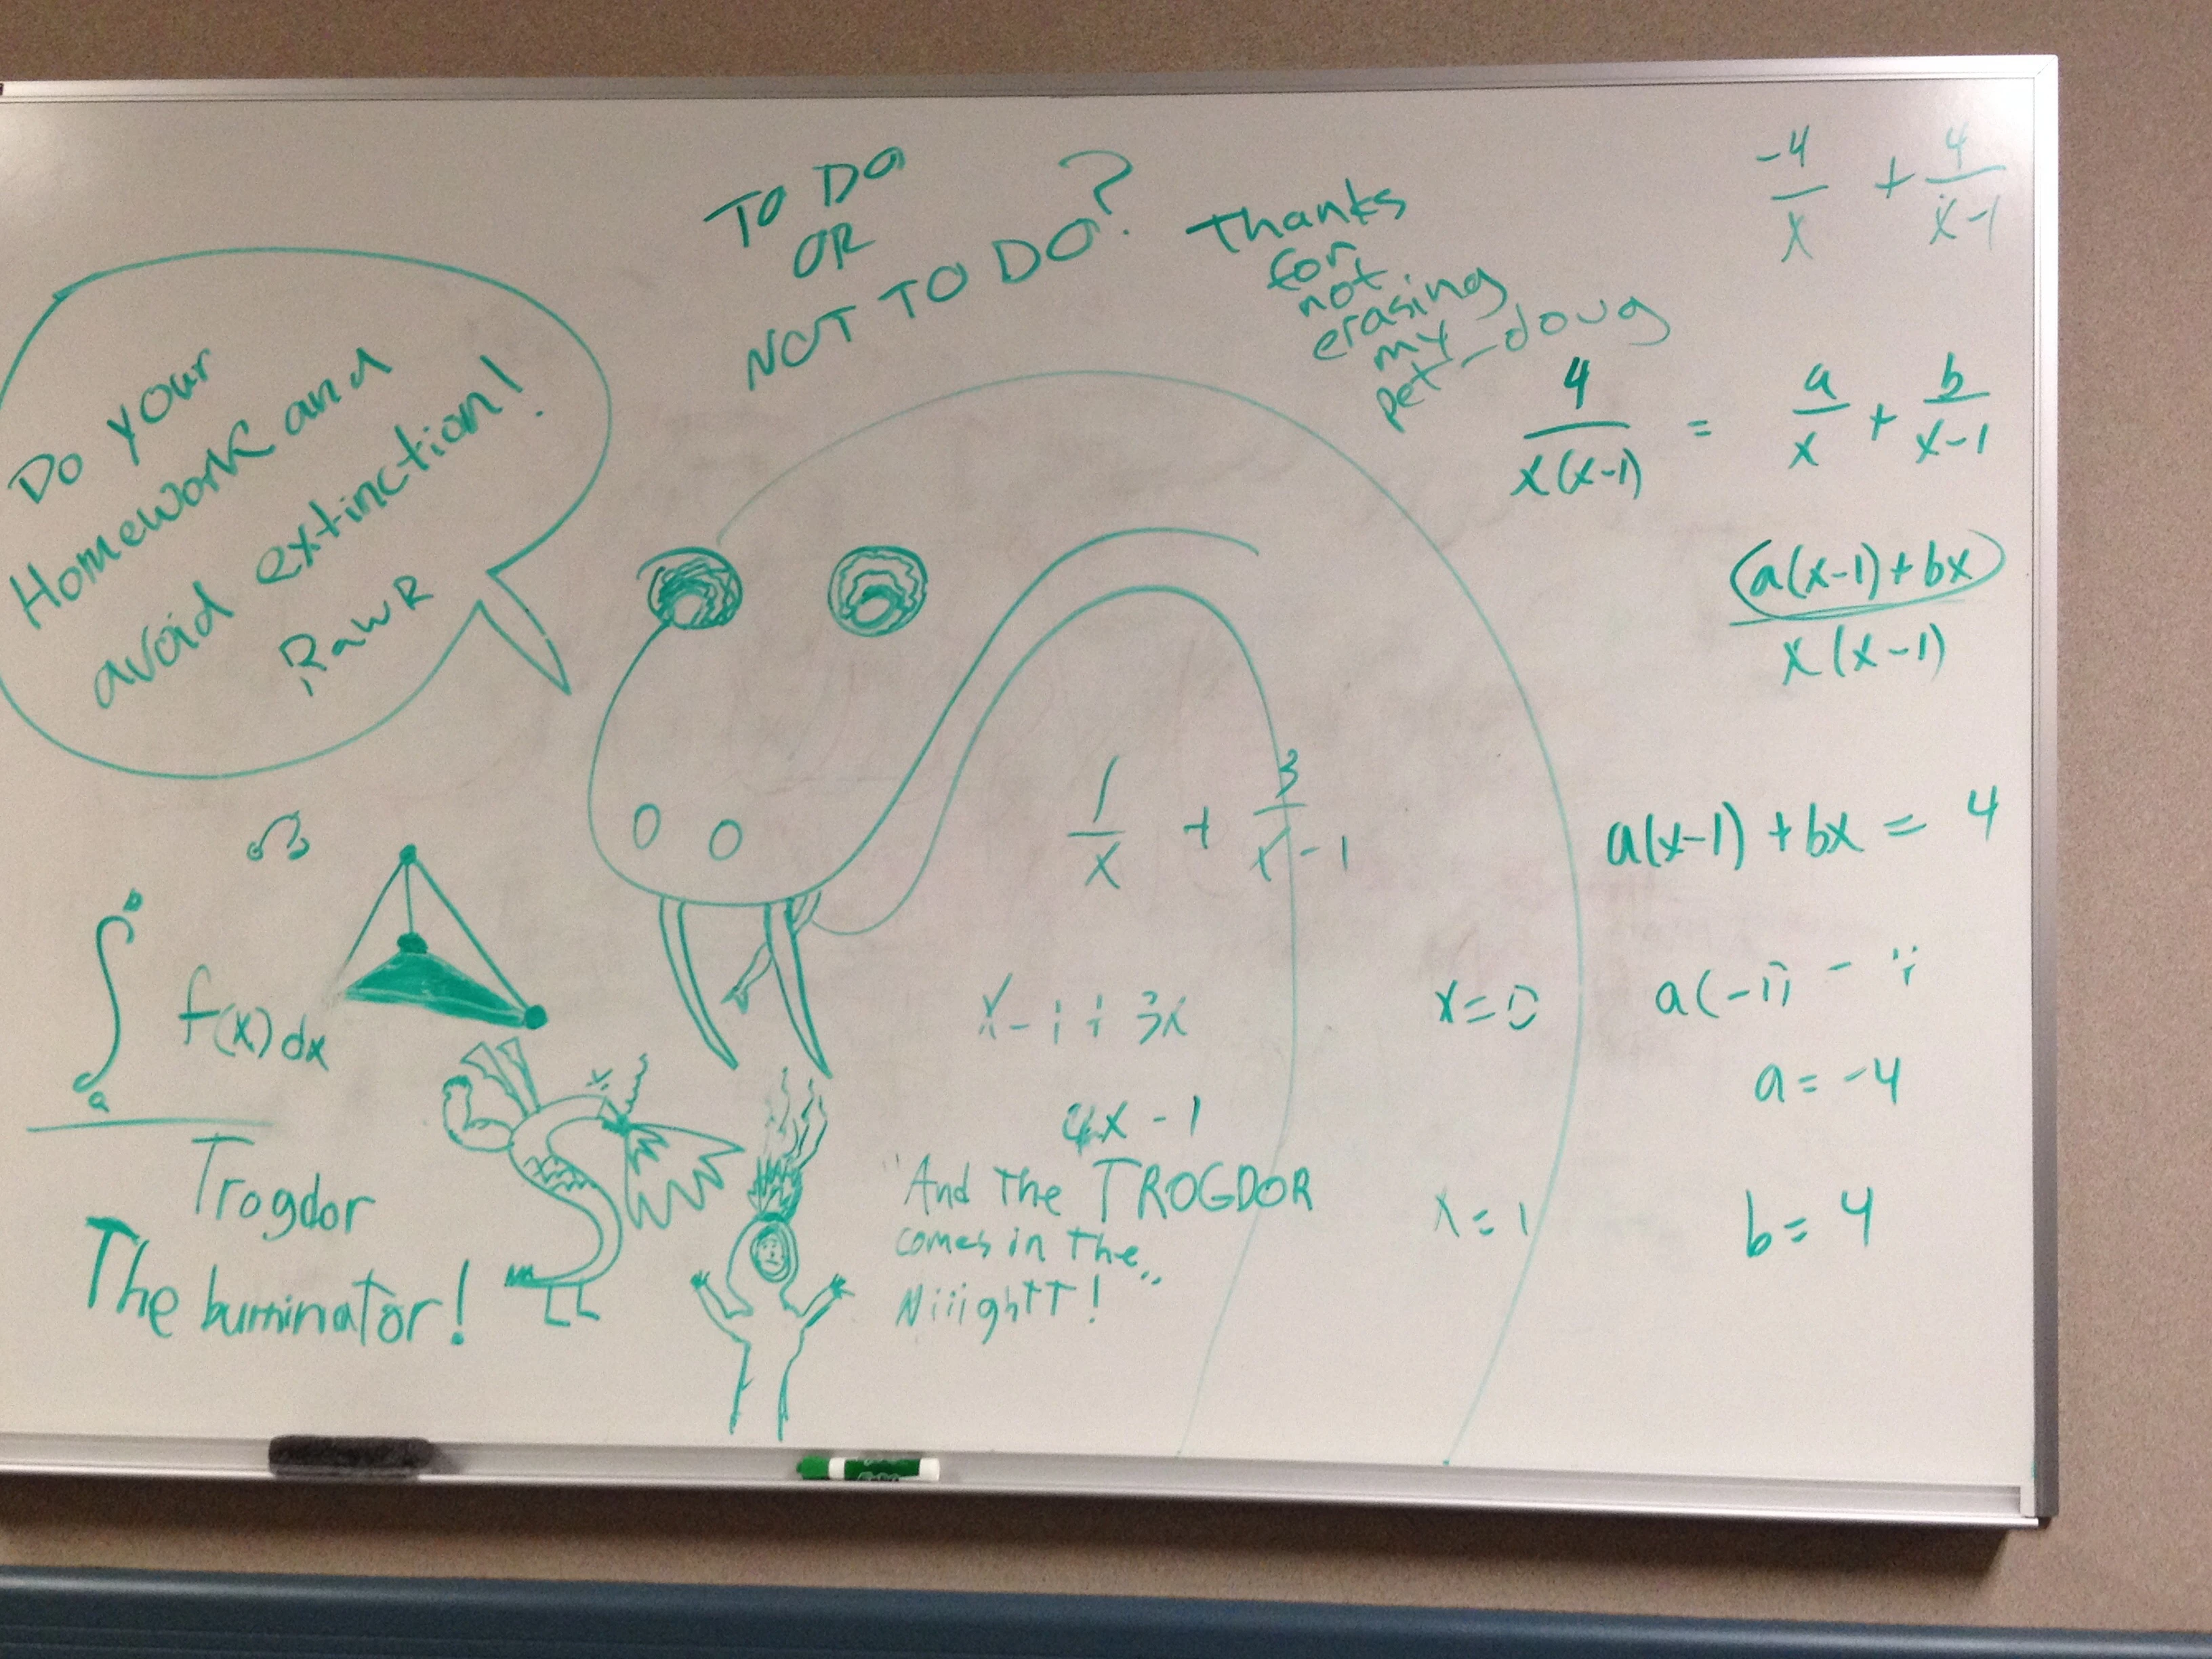 TO DO
OR
NOT TO DO?
Thanks
for
not
erasing
my
pet - doug
Do your
Homework and
avoid extinction!
RawR
-4/x + 4/x-1
4/x(x-1) = a/x + b/x-1
a(x-1)+bx/x(x-1)
a(x-1) + bx = 4
x=0 a(-1) =
a = -4
x = 1 b = 4
1/x + 3/x-1
x-1+3x
4x-1
∫ b a f(x) dx
Trogdor
The burninator!
"And the TROGDOR
comes in the
Niiightt!"